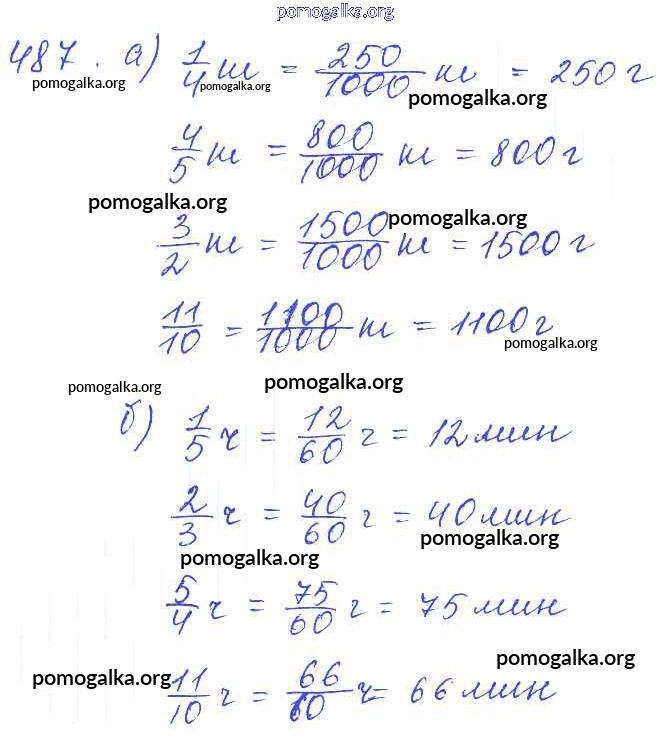 pomogalka.org
487. а) 1/4 кг = 250/1000 кг = 250 г
pomogalka.org pomogalka.org pomogalka.org
4/5 кг = 800/1000 кг = 800 г
pomogalka.org pomogalka.org
3/2 кг = 1500/1000 кг = 1500 г
11/10 = 1100/1000 кг = 1100 г
pomogalka.org
pomogalka.org pomogalka.org
б) 1/5 ч = 12/60 ч = 12 мин
2/3 ч = 40/60 ч = 40 мин
pomogalka.org pomogalka.org
5/4 ч = 75/60 ч = 75 мин
pomogalka.org pomogalka.org
11/10 ч = 66/60 ч = 66 мин